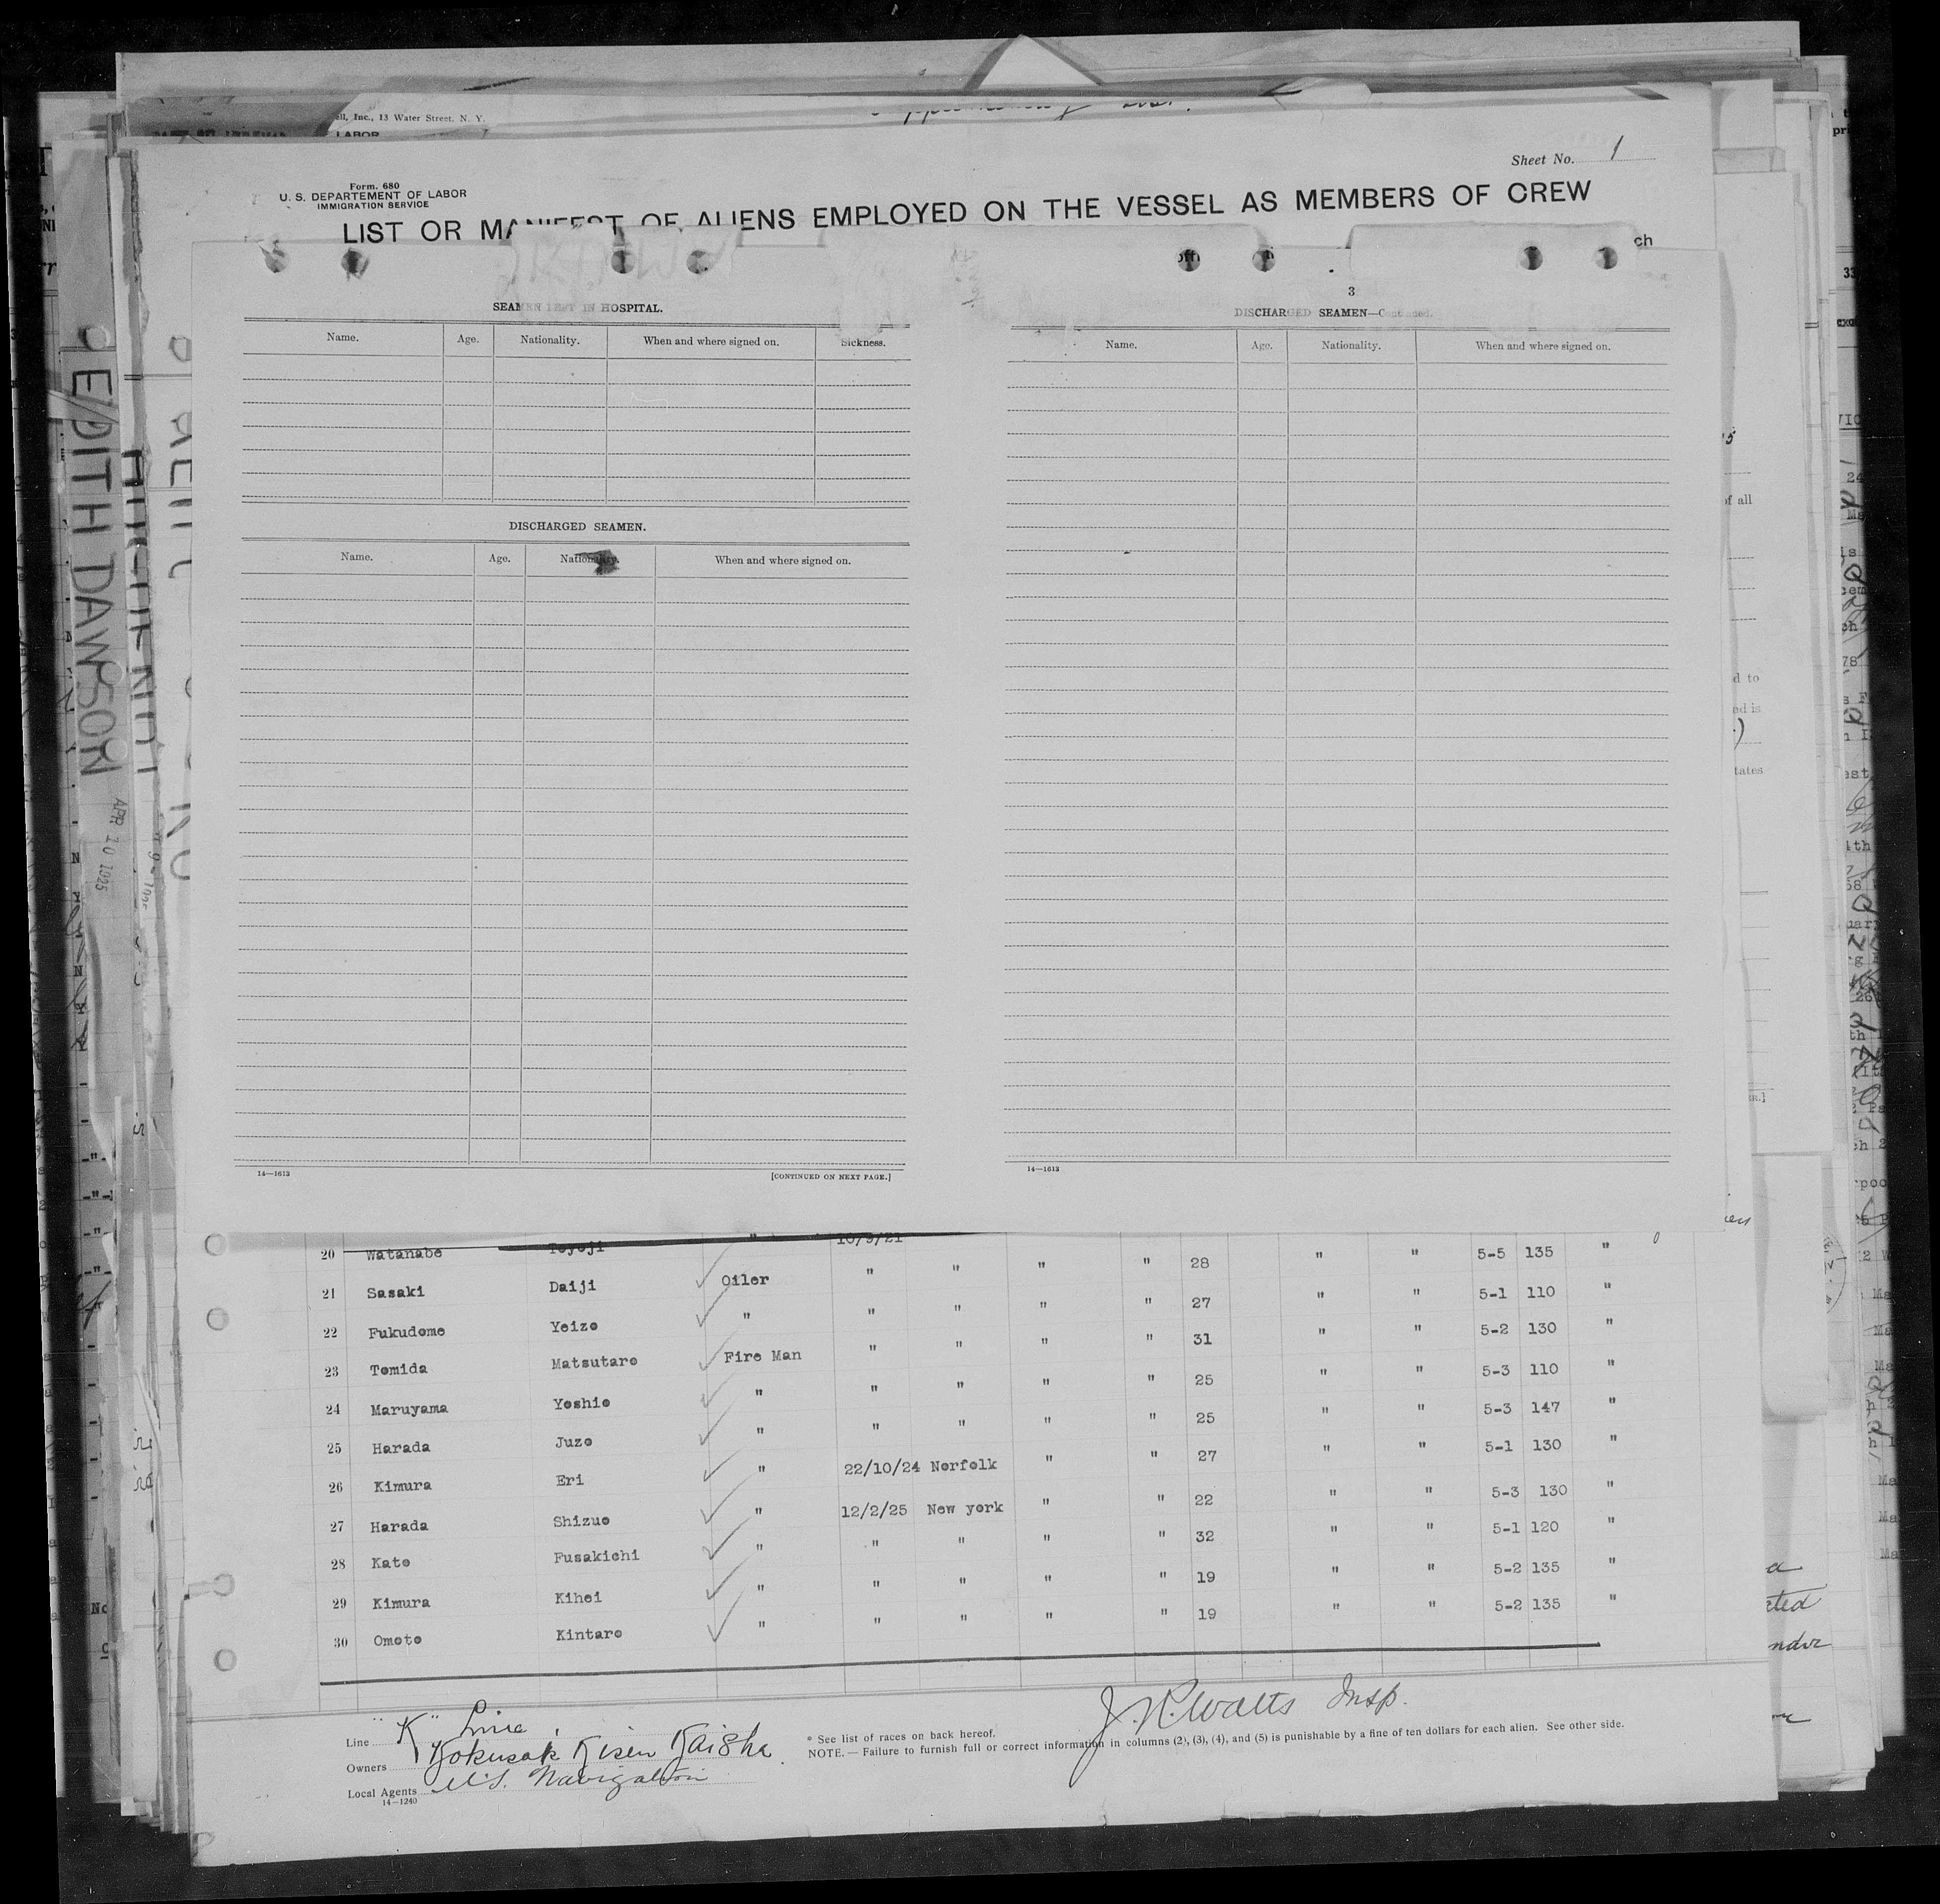 ell, Inc., 13 Water Street. N. Y.
LABOR
Sheet No. 1
Form. 680
U. S. DEPARTEMENT OF LABOR
IMMIGRATION SERVICE
LIST OR MANIFEST OF ALIENS EMPLOYED ON THE VESSEL AS MEMBERS OF CREW
ch
3
SEAMEN LEFT IN HOSPITAL.
Name. Age. Nationality. When and where signed on. Sickness.
DISCHARGED SEAMEN.
Name. Age. Nationality. When and where signed on.
14—1613 [CONTINUED ON NEXT PAGE.]
DISCHARGED SEAMEN—Continued.
Name. Age. Nationality. When and where signed on.
14—1613
EDITH DAWSON
APR 10 1925
of all
d to
nd is
tates
20 Watanabe Toyoji " 10/9/21
" " " " 28 " " 5-5 135 "
21 Sasaki Daiji Oiler " " " " 27 " " 5-1 110 "
22 Fukudome Yeizo " " " " " 31 " " 5-2 130 "
23 Tomida Matsutaro Fire Man " " " " 25 " " 5-3 110 "
24 Maruyama Yoshio " " " " " 25 " " 5-3 147 "
25 Harada Juzo " " " " " 27 " " 5-1 130 "
26 Kimura Eri " 22/10/24 Norfolk " " 22 " " 5-3 130 "
27 Harada Shizuo " 12/2/25 New york " " 32 " " 5-1 120 "
28 Kato Fusakichi " " " " " 19 " " 5-2 135 "
29 Kimura Kihei " " " " " 19 " " 5-2 135 "
30 Omoto Kintaro " " " " "
J. R. Watts Insp.
Line "K" Line
Owners Kokusak Kisen Kaisha.
Local Agents U.S. Navigation
14—1240
* See list of races on back hereof.
NOTE. — Failure to furnish full or correct information in columns (2), (3), (4), and (5) is punishable by a fine of ten dollars for each alien. See other side.